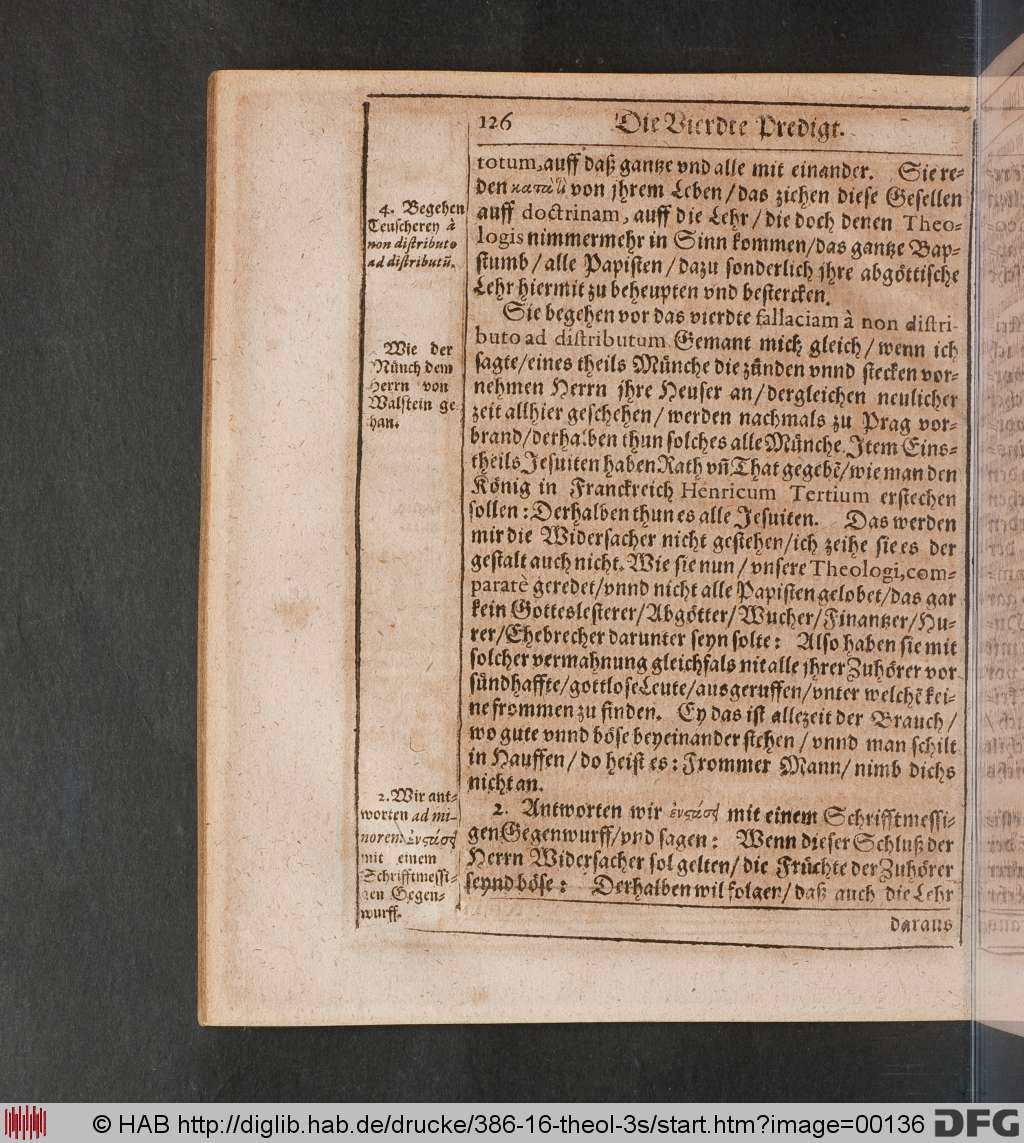 126 Die Vierdte Predigt.
totum, auff daß gantze vnd alle mit einander. Sie re-
den von jhrem Leben/das ziehen diese Gesellen
auff doctrinam, auff die Lehr/die doch denen Theo-
logis nimmermehr in Sinn kommen/das gantze Bap-
stumb/alle Papisten/dazu sonderlich jhre abgöttische
Lehr hiermit zu beheupten vnd bestercken.
Sie begehen vor das vierdte fallaciam à non distri-
buto ad distributum. Gemant mich gleich/wenn ich
sagte/eines theils Münche die zünden vnnd stecken vor-
nehmen Herrn jhre Heuser an/dergleichen neulicher
zeit allhier geschehen/werden nachmals zu Prag vor-
brand/derhalben thun solches alle Münche. Item Eins-
theils Jesuiten haben Rath vñ That gegebẽ/wie man den
König in Franckreich Henricum Tertium erstechen
sollen: Derhalben thun es alle Jesuiten. Das werden
mir die Widersacher nicht gestehen/ich zeihe sie es der
gestalt auch nicht. Wie sie nun/vnsere Theologi, com-
paratè geredet/vnnd nicht alle Papisten gelobet/das gar
kein Gotteslesterer/Abgötter/Wucher/Finantzer/Hu-
rer/Ehebrecher darunter seyn solte: Also haben sie mit
solcher vermahnung gleichfals nit alle jhrer Zuhörer vor
sündhaffte/gottlose Leute/ausgeruffen/vnter welchẽ kei-
ne frommen zu finden. Ey das ist allezeit der Brauch/
wo gute vnnd böse beyeinander stehen/vnnd man schilt
in Hauffen/do heist es: Frommer Mann/nimb dichs
nicht an.
2. Antworten wir mit einem Schrifftmessi-
gen Gegenwurff/vnd sagen: Wenn dieser Schluß der
Herrn Widersacher sol gelten/die Früchte der Zuhörer
seynd böse: Derhalben wil folgen/daß auch die Lehr
daraus
4. Begehen
Teuscherey à
non distributo
ad distributũ.
Wie der
Münch dem
Herrn von
Walstein ge
than.
2. Wir ant-
worten ad mi-
norem
mit einem
Schrifftmessi-
gen Gegen-
wurff.
© HAB http://diglib.hab.de/drucke/386-16-theol-3s/start.htm?image=00136
DFG